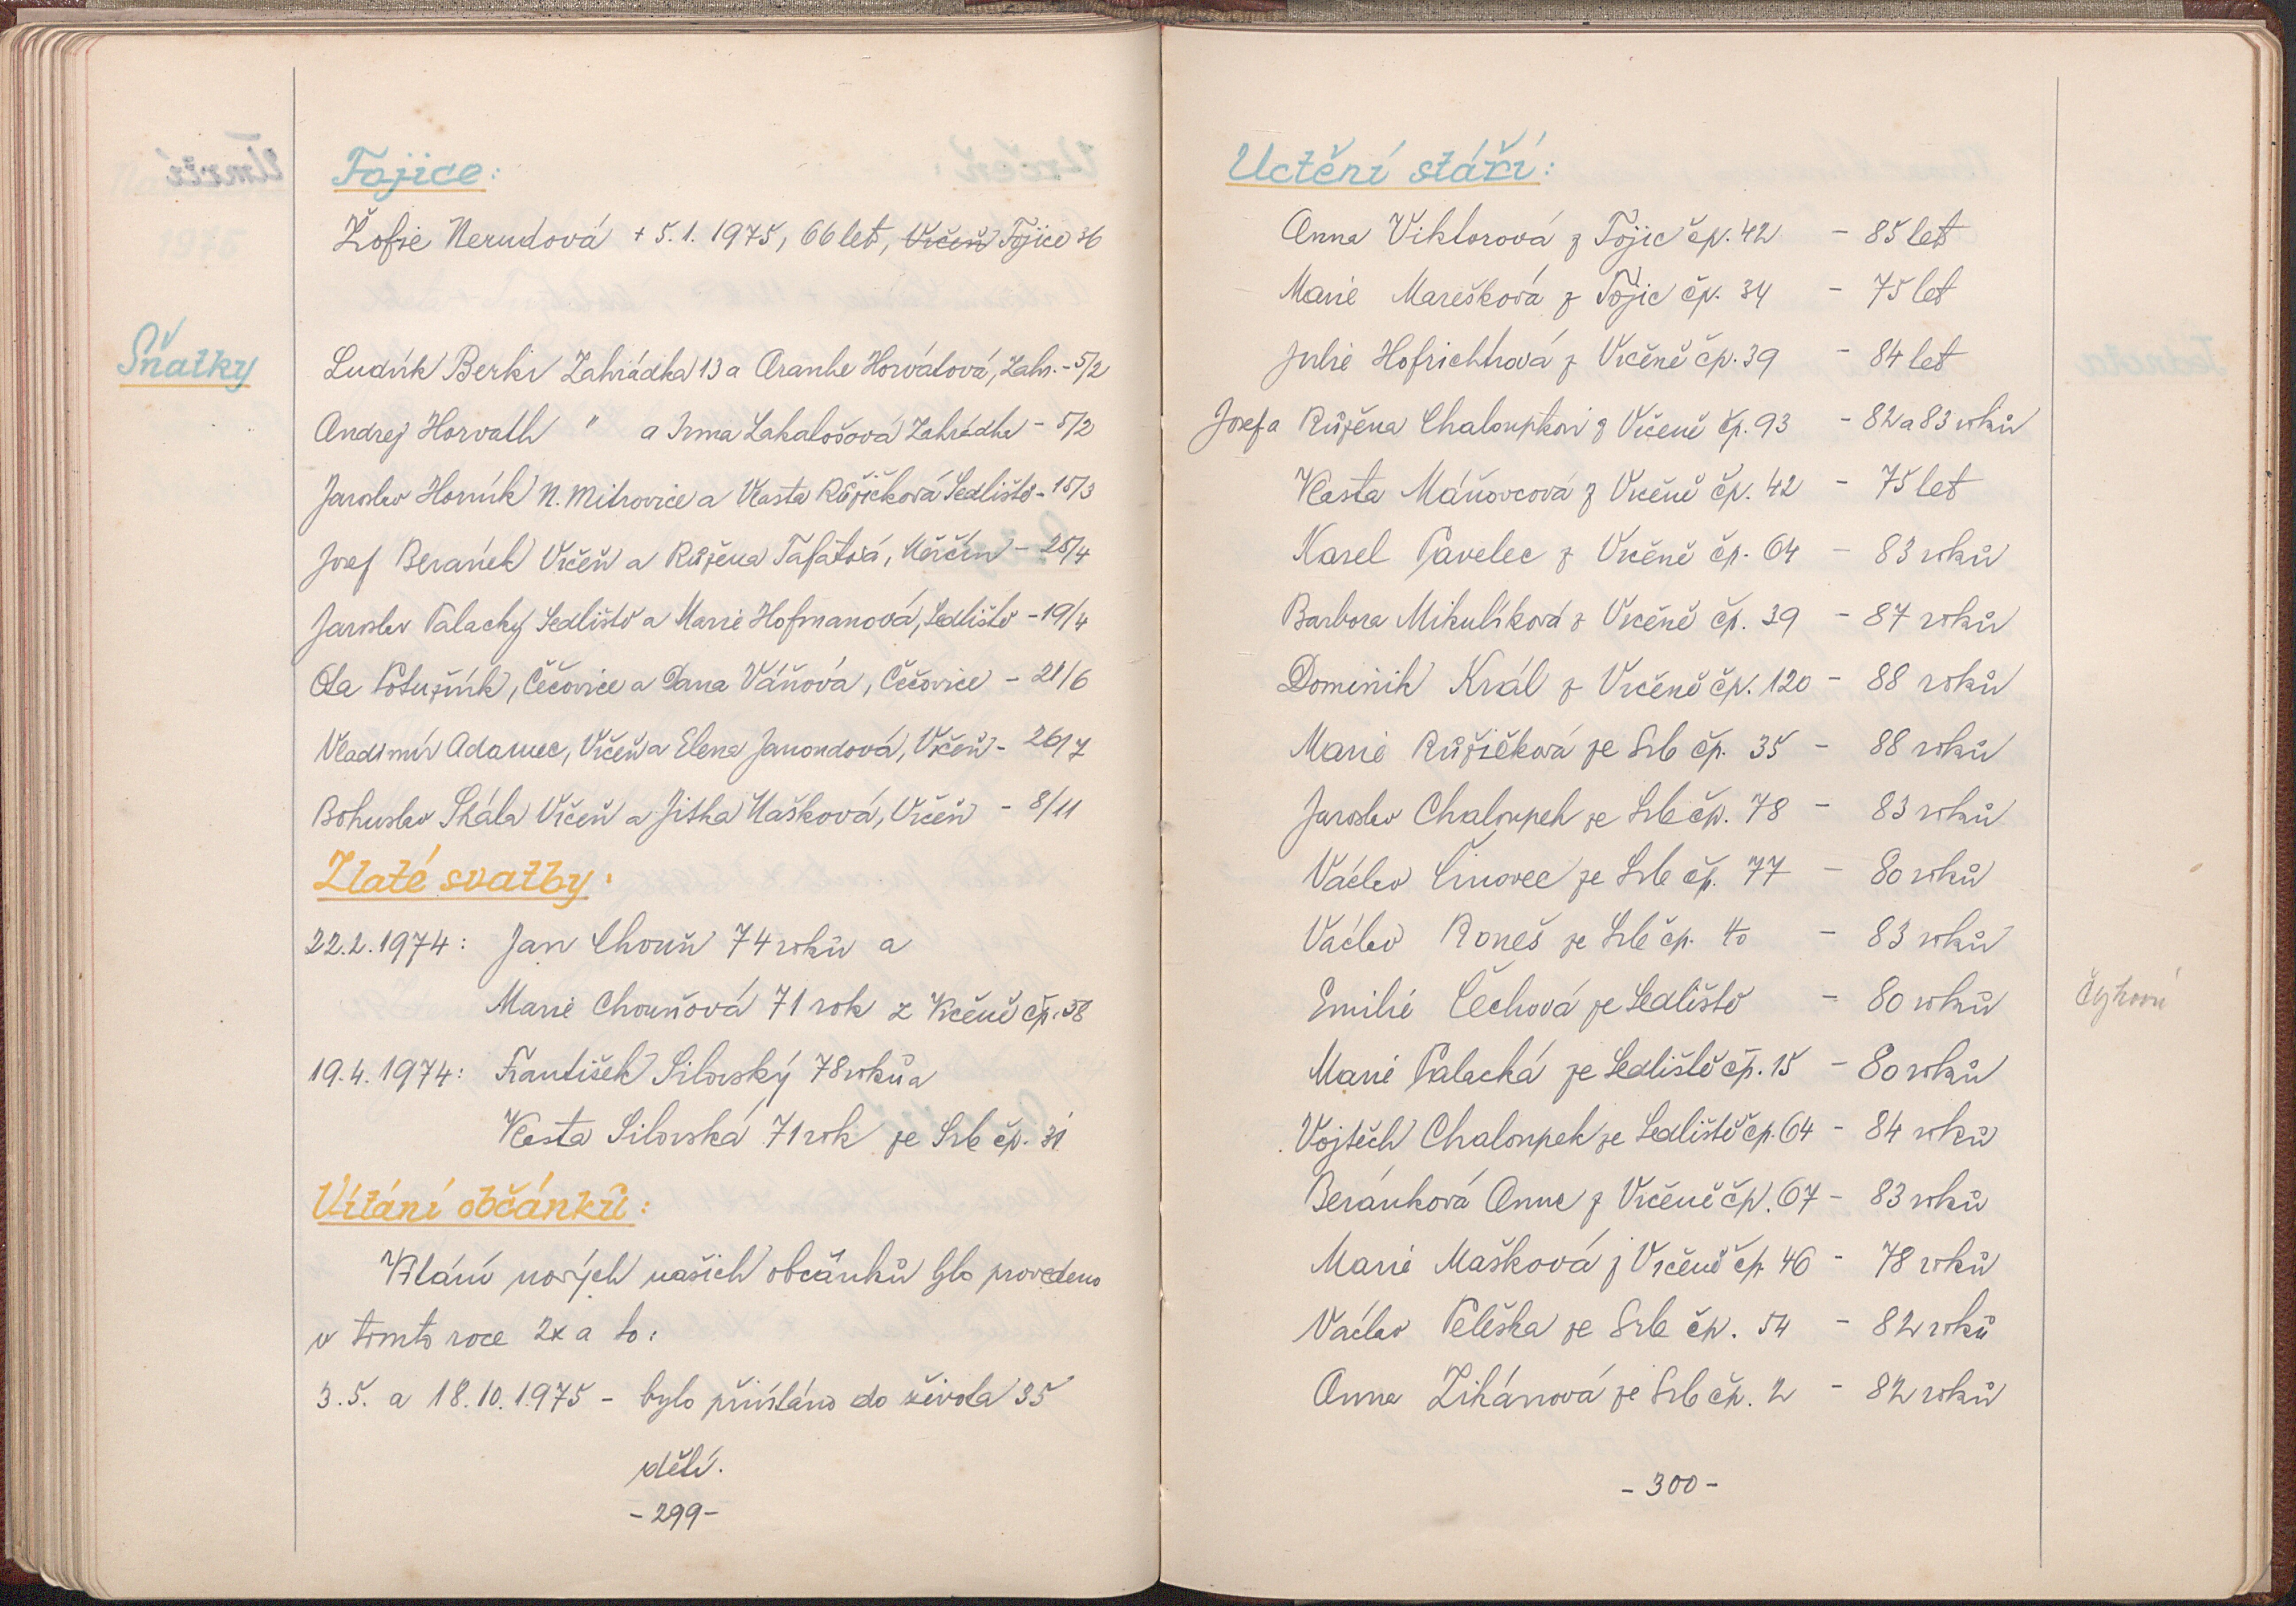 Tojice:
Žofie Nerudová + 5.1. 1975, 66 let, Vrčeň Tojice 36
Sňatky
Ludvík Berki Zahrádka 13 a Aranke Horvátová, Zahr. - 5/2
Andrej Horvath " a Irma Lakatošová Zahrádka - 5/2
Jaroslav Horník N. Mitrovice a Vlasta Růžičková Sedliště - 15/3
Josef Beránek Vrčeň a Růžena Tafatová, Měrčín - 25/4
Jaroslav Palacký Sedliště a Marie Hofmanová, Sedliště - 19/4
Ota Potužník, Čečovice a Dana Váňová, Čečovice - 21/6
Vladimír Adamec, Vrčeň a Elena Janondová, Vrčeň - 26/7
Bohuslav Skála Vrčeň a Jitka Hašková, Vrčeň - 8/11
Zlaté svatby:
22.2.1974: Jan Chouň 74 roků a
Marie Chouňová 71 rok z Vrčeně čp. 38
19.4.1974: František Silovský 78 roků a
Vlasta Silovská 71 rok ze Srb čp. 31
Vítání občánků:
Vítání nových našich občánků bylo provedeno
v tomto roce 2x a to:
3.5. a 18.10.1975 - bylo přivítáno do života 35
dětí.
- 299 -
Uctění stáří:
Anna Viktorová z Tojic čp. 42 - 85 let
Marie Marešková z Tojic čp. 34 - 75 let
Julie Hofrichtrová z Vrčeně čp. 39 - 84 let
Josef a Růžena Chaloupkovi z Vrčeně čp. 93 - 82 a 83 roků
Vlasta Máňovcová z Vrčeně čp. 42 - 75 let
Karel Pavelec z Vrčeně čp. 64 - 83 roků
Barbora Mikulíková z Vrčeně čp. 39 - 87 roků
Dominik Král z Vrčeně čp. 120 - 88 roků
Marie Růžičková ze Srb čp. 35 - 88 roků
Jaroslav Chaloupek ze Srb čp. 78 - 83 roků
Václav Činovec ze Srb čp. 77 - 80 roků
Václav Roneš ze Srb čp. 40 - 83 roků
Emilie Čechová ze Sedliště - 80 roků
Marie Palacká ze Sedliště čp. 15 - 80 roků
Vojtěch Chaloupek ze Sedliště čp. 64 - 84 roků
Beránková Anna z Vrčeně čp. 67 - 83 roků
Marie Mašková z Vrčeně čp. 46 - 78 roků
Václav Peleška ze Srb čp. 54 - 82 roků
Anna Zikánová ze Srb čp. 2 - 82 roků
- 300 -